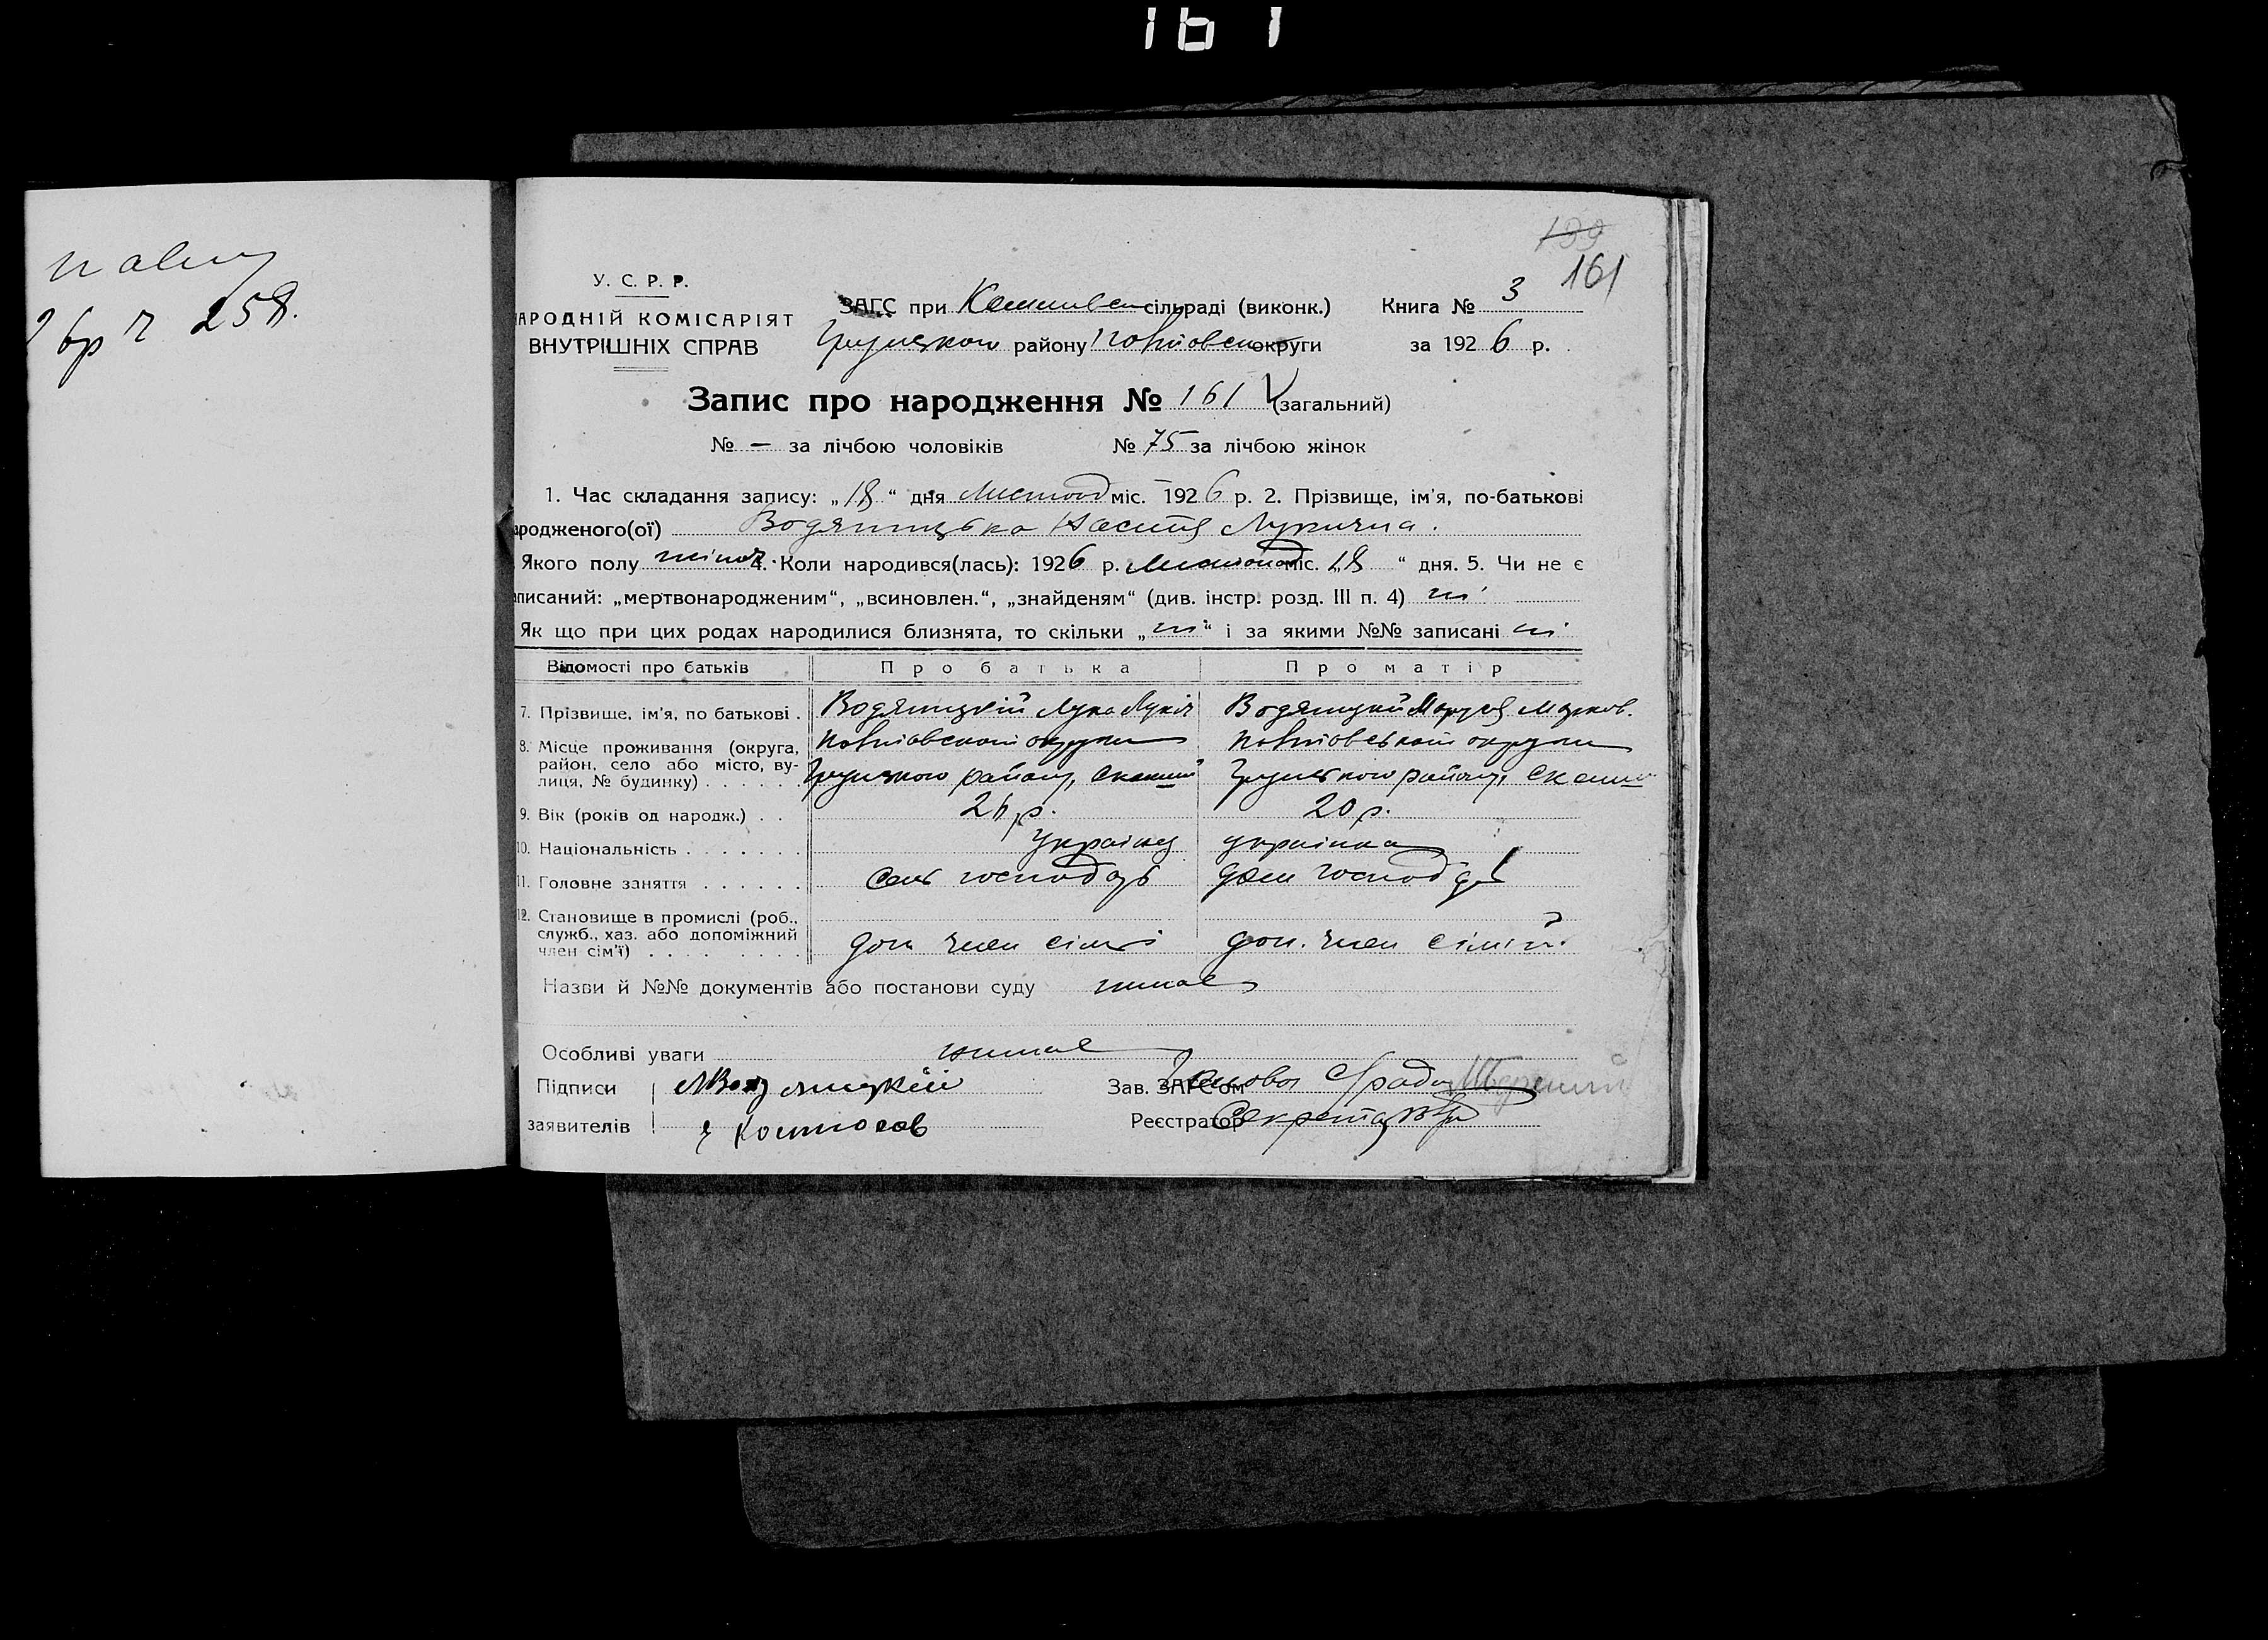 161
258.
199
161
У. С. Р. Р.
АРОДНІЙ КОМІСАРІЯТ
ВНУТРІШНІХ СПРАВ
ЗАГС при сільраді (виконк.) Книга № 3
району округи за 1926 р.
Запис про народження № 161 (загальний)
№ — за лічбою чоловіків № 75 за лічбою жінок
1. Час складання запису: „18“ дня Листопад міс. 1926 р. 2. Прізвище, ім'я, по-батькові
ародженого(ої) Водяницька Настя Лукична.
Якого полу жіноч. 4. Коли народився(лась): 1926 р. Листопад міс. „18“ дня. 5. Чи не є
аписаний: „мертвонародженим“, „всиновлен.“, „знайденям“ (див. інстр. розд. III п. 4) ні
Як що при цих родах народилися близнята, то скільки „ні“ і за якими №№ записані ні
Відомості про батьків Про батька Про матір
7. Прізвище, ім'я, по батькові . Водяницкій Лука Лукіч Водяницкй Маруся Марков.
8. Місце проживання (округа, округи округи
район, село або місто, ву-
лиця, № будинку) . . . . . . району, району,
9. Вік (років од народж.) . . 26 р. 20 р.
10. Національність . . . . . . . Українец українка
11. Головне заняття . . . . . . Сель господарь дом господ
12. Становище в промислі (роб.,
служб., хаз. або допоміжний
член сім'ї) . . . . . . . . . доп член сімї доп. член сімії.
Назви й №№ документів або постанови суду немає
Особливі уваги немає
Підписи Водяницкій Зав. ЗАГС'ом Голова С/ради
заявителів Реєстратор Секретар